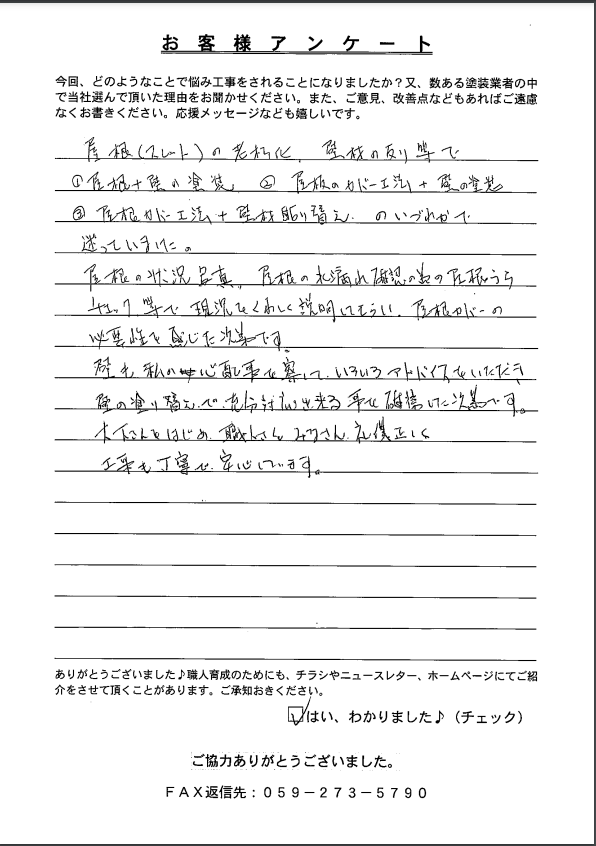 お客様アンケート
今回、どのようなことで悩み工事をされることになりましたか？又、数ある塗装業者の中
で当社選んで頂いた理由をお聞かせください。また、ご意見、改善点などもあればご遠慮
なくお書きください。応援メッセージなども嬉しいです。
屋根(スレート)の老朽化、壁材の反り等で
①屋根+壁の塗装 ② 屋根のカバー工法+壁の塗装
③屋根カバー工法+壁材貼り替え.のいづれかで
迷っていました。
屋根の状況写真、屋根の水漏れ確認の為の屋根うら
チェック等で現況をくわしく説明してもらい、屋根カバーの
必要性を感じた次第です。
壁も私の心配事を察して、いろいろアドバイスをいただき
壁の塗り替えで.充分対応出来る事を確信した次第です。
大工さんをはじめ、職人さん みなさん.礼儀正しく
工事も丁寧で.安心しています。
ありがとうございました♪職人育成のためにも、チラシやニュースレター、ホームページにてご紹
介をさせて頂くことがあります。ご承知おきください。
☑はい、わかりました♪（チェック）
ご協力ありがとうございました。
ＦＡＸ返信先：０５９－２７３－５７９０